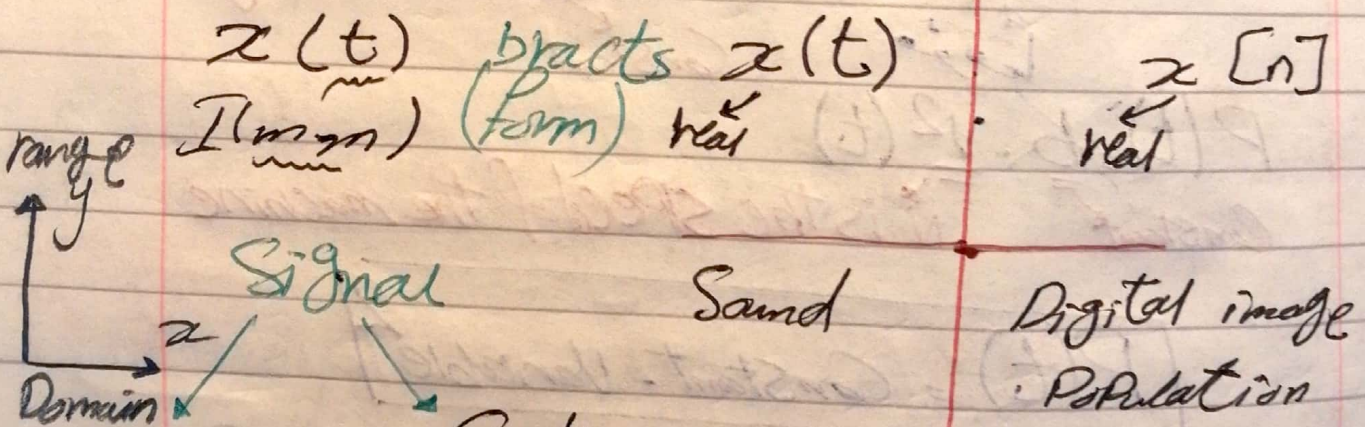 x(t) bracts x(t) x[n]
I(m,n) (form) real real
range
y
Signal Sound Digital image
x
Domain Population